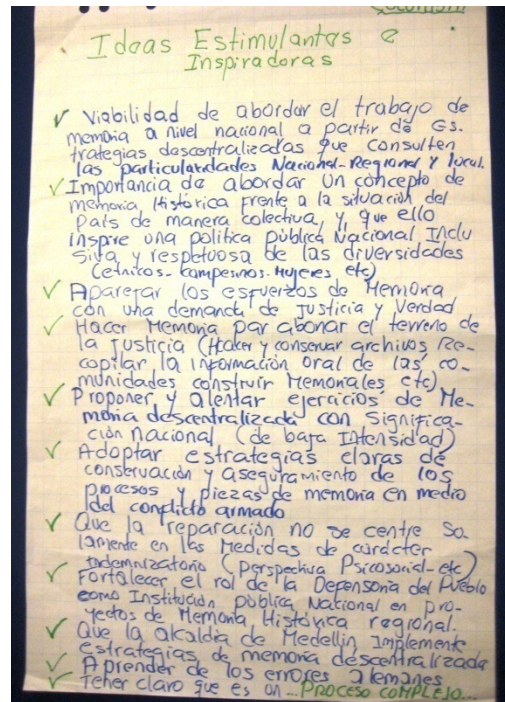 COLOMBIA
Ideas Estimulantes e
Inspiradoras
✓ Viabilidad de abordar el trabajo de
memoria a nivel nacional a partir de Es-
trategias descentralizadas que consulten
las particularidades Nacional-Regional y local.
✓ Importancia de abordar un concepto de
memoria Histórica frente a la situación del
País de manera colectiva, y que ello
inspire una política pública Nacional Inclu
siva y respetuosa de las diversidades
(etnicos-campesinos-Mujeres etc)
✓ Aparejar los esfuerzos de Memoria
con una demanda de Justicia y Verdad
✓ Hacer Memoria par abonar el terreno de
la Justicia (Hacer y conservar archivos Re-
copilar la información oral de las co-
munidades construir Memoriales etc)
✓ Proponer y alentar ejercicios de Me-
moria descentralizada con Significa-
ción nacional (de baja Intensidad)
✓ Adoptar estrategias claras de
conservación y aseguramiento de los
procesos y piezas de memoria en medio
del conflicto armado
✓ Que la reparación no se centre So-
lamente en las Medidas de carácter
Indemnizatorio (perspectiva Psicosocial-etc)
✓ Fortalecer el rol de la Defensoria del Pueblo
como Institución pública Nacional en pro-
yectos de Memoria Histórica regional.
✓ Que la alcaldia de Medellin Implemente
estrategias de memoria descentralizada
✓ Aprender de los errores alemanes
✓ Tener claro que es un ... PROCESO COMPLEJO...